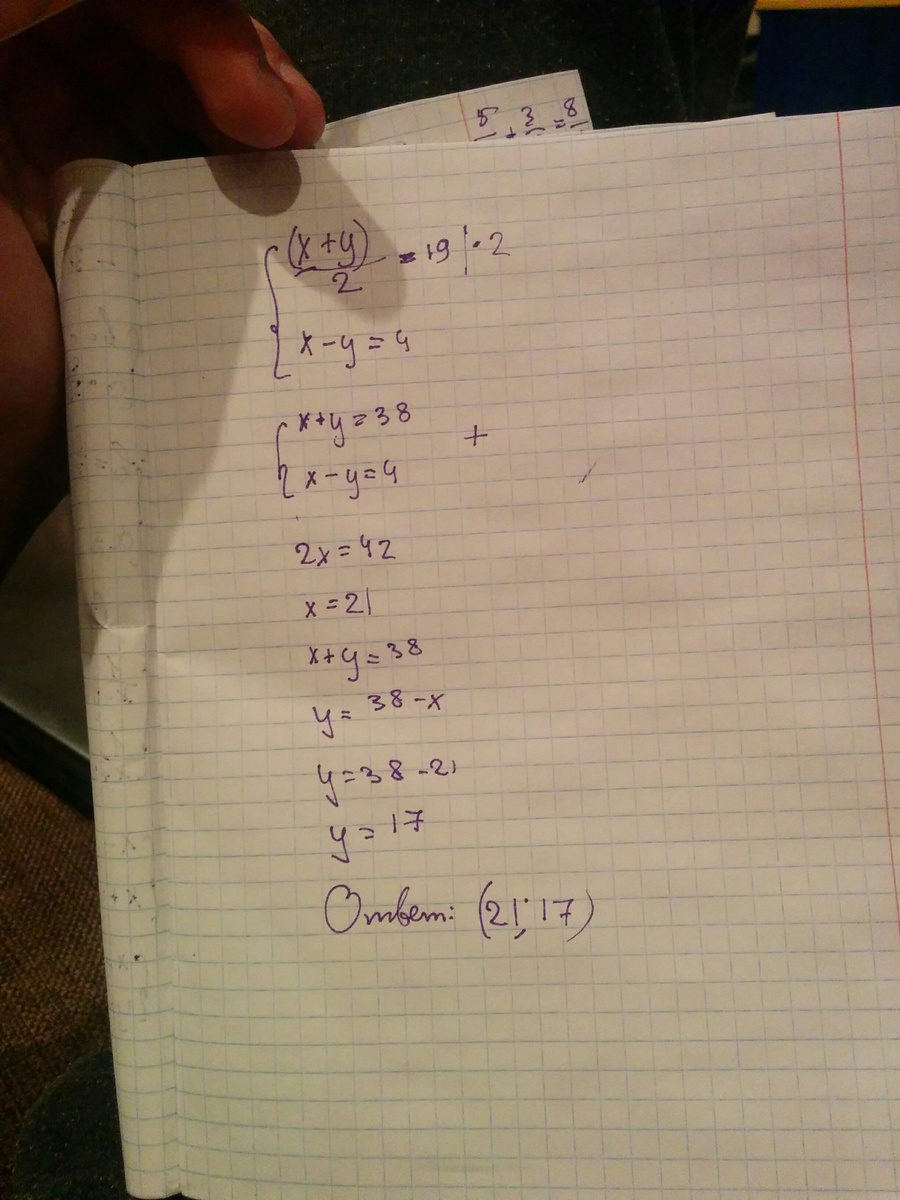 5 + 3 = 8
(x+y)
2
= 19 | · 2
x - y = 4
x+y = 38
+
x - y = 4
2x = 42
x = 21
x+y = 38
y = 38 - x
y = 38 - 21
y = 17
Ответ: (21; 17)